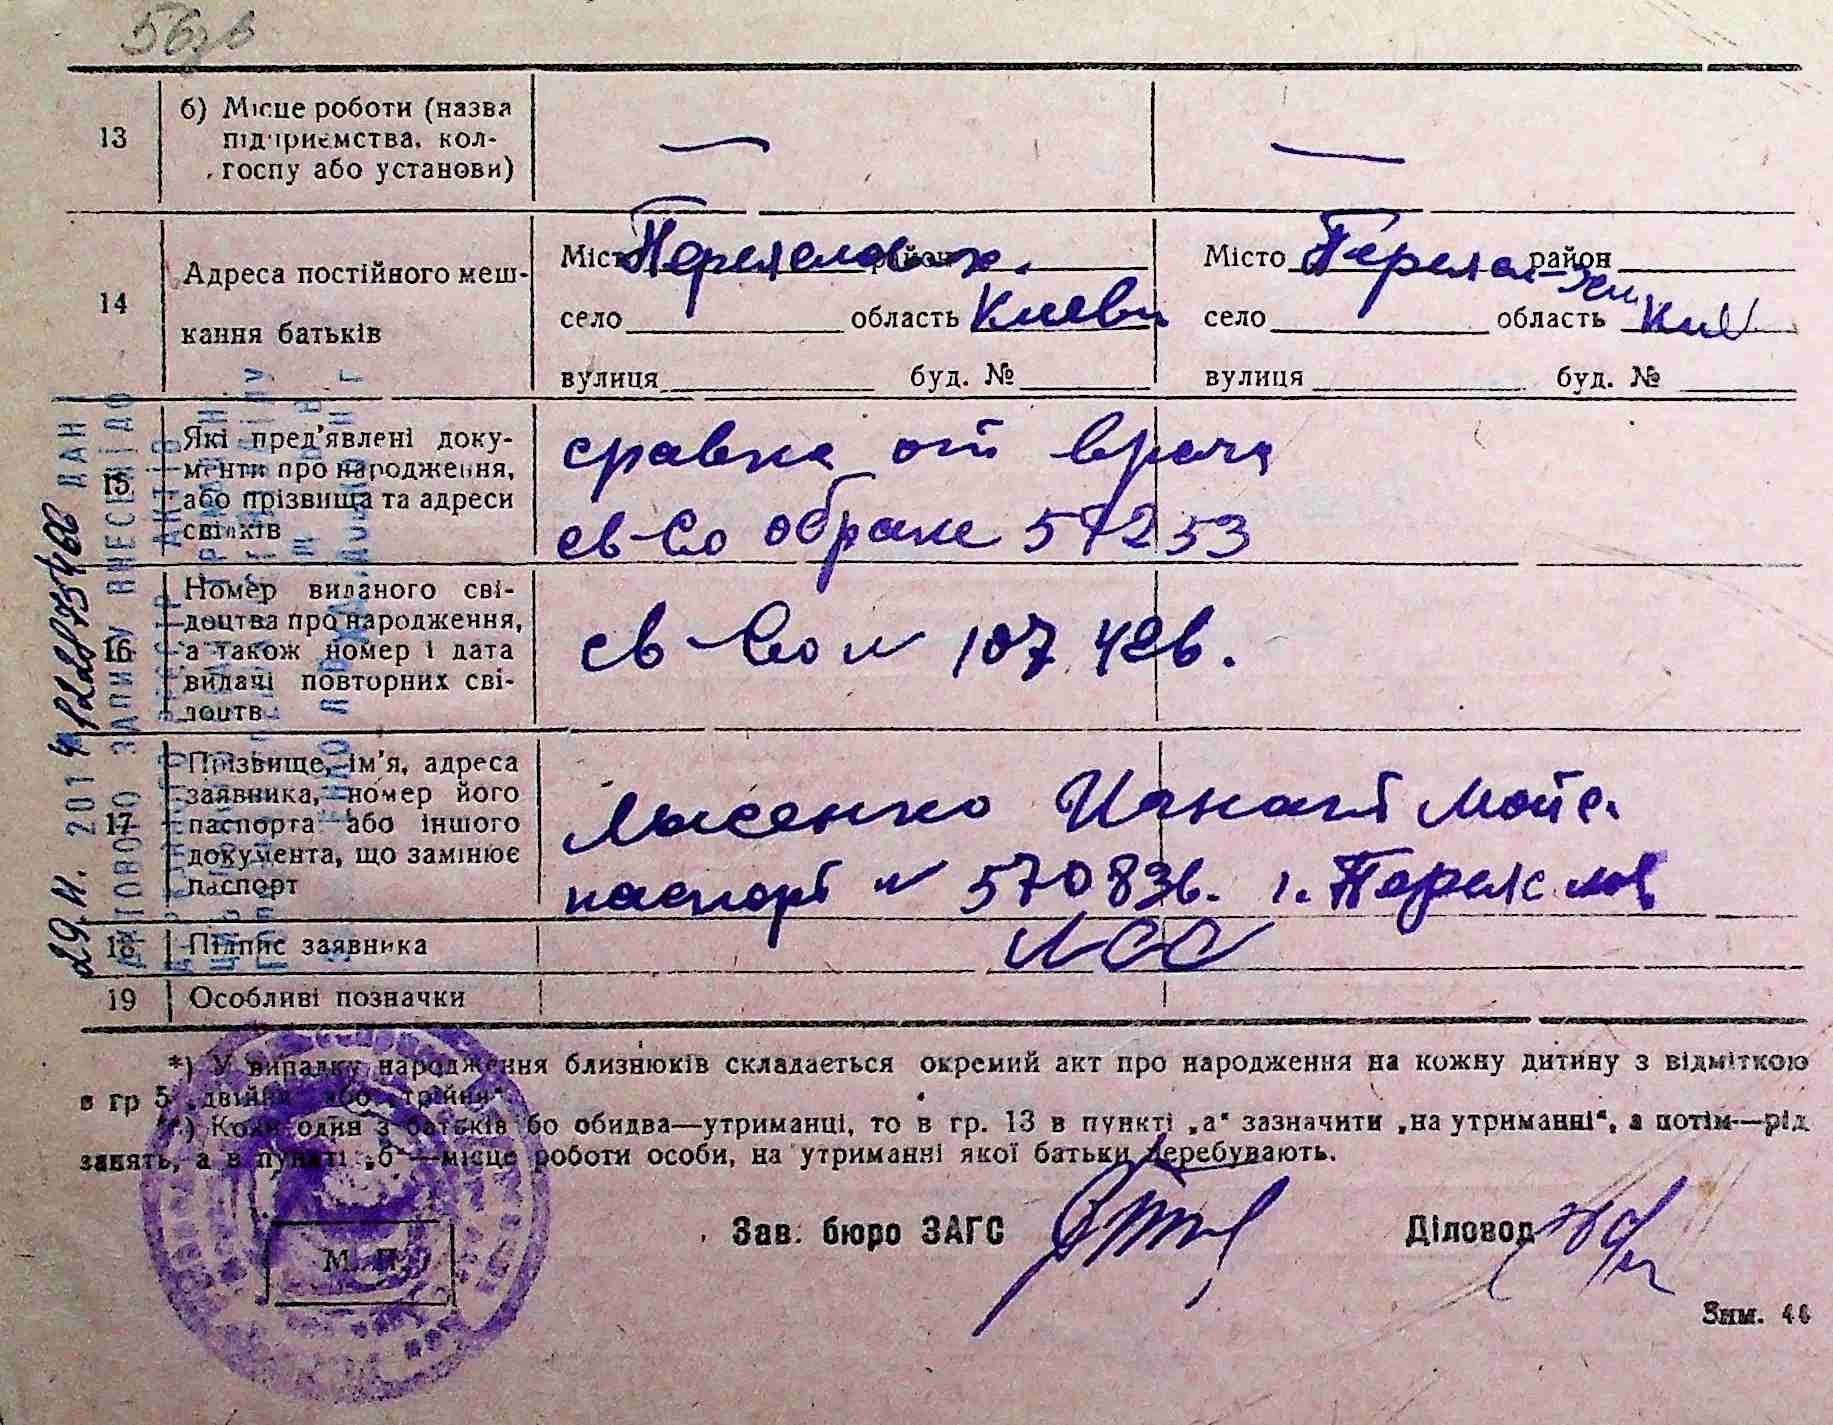 56зв
13
б) Місце роботи (назва
підприємства, кол-
госпу або установи)
—
—
14
Адреса постійного меш-
кання батьків
Місто район
село область Киевск
вулиця буд. №
Місто Переясл-Хм район
село область Киев
вулиця буд. №
15
Які пред'явлені доку-
менти про народження,
або прізвища та адреси
свідків
сравка от врача
св-во обраке 57253
16
Номер виданого сві-
доцтва про народження,
а також номер і дата
видачі повторних сві-
доцтв
св-во № 107428.
17
Прізвище, ім'я, адреса
заявника, номер його
паспорта або іншого
документа, що замінює
паспорт
Лысенко Игнат Мойс.
паспорт № 570836. г. Переяслов
18
Підпис заявника
19
Особливі позначки
*) У випадку народження близнюків складається окремий акт про народження на кожну дитину з відміткою
в гр 5 „двійня" або „трійня".
**) Коли один з батьків бо обидва—утриманці, то в гр. 13 в пункті „а" зазначити „на утриманні", а потім—рід
занять, а в пункті „б"—місце роботи особи, на утриманні якої батьки перебувають.
М. П.
Зав. бюро ЗАГС
Діловод
Зим. 44
29.11.2014